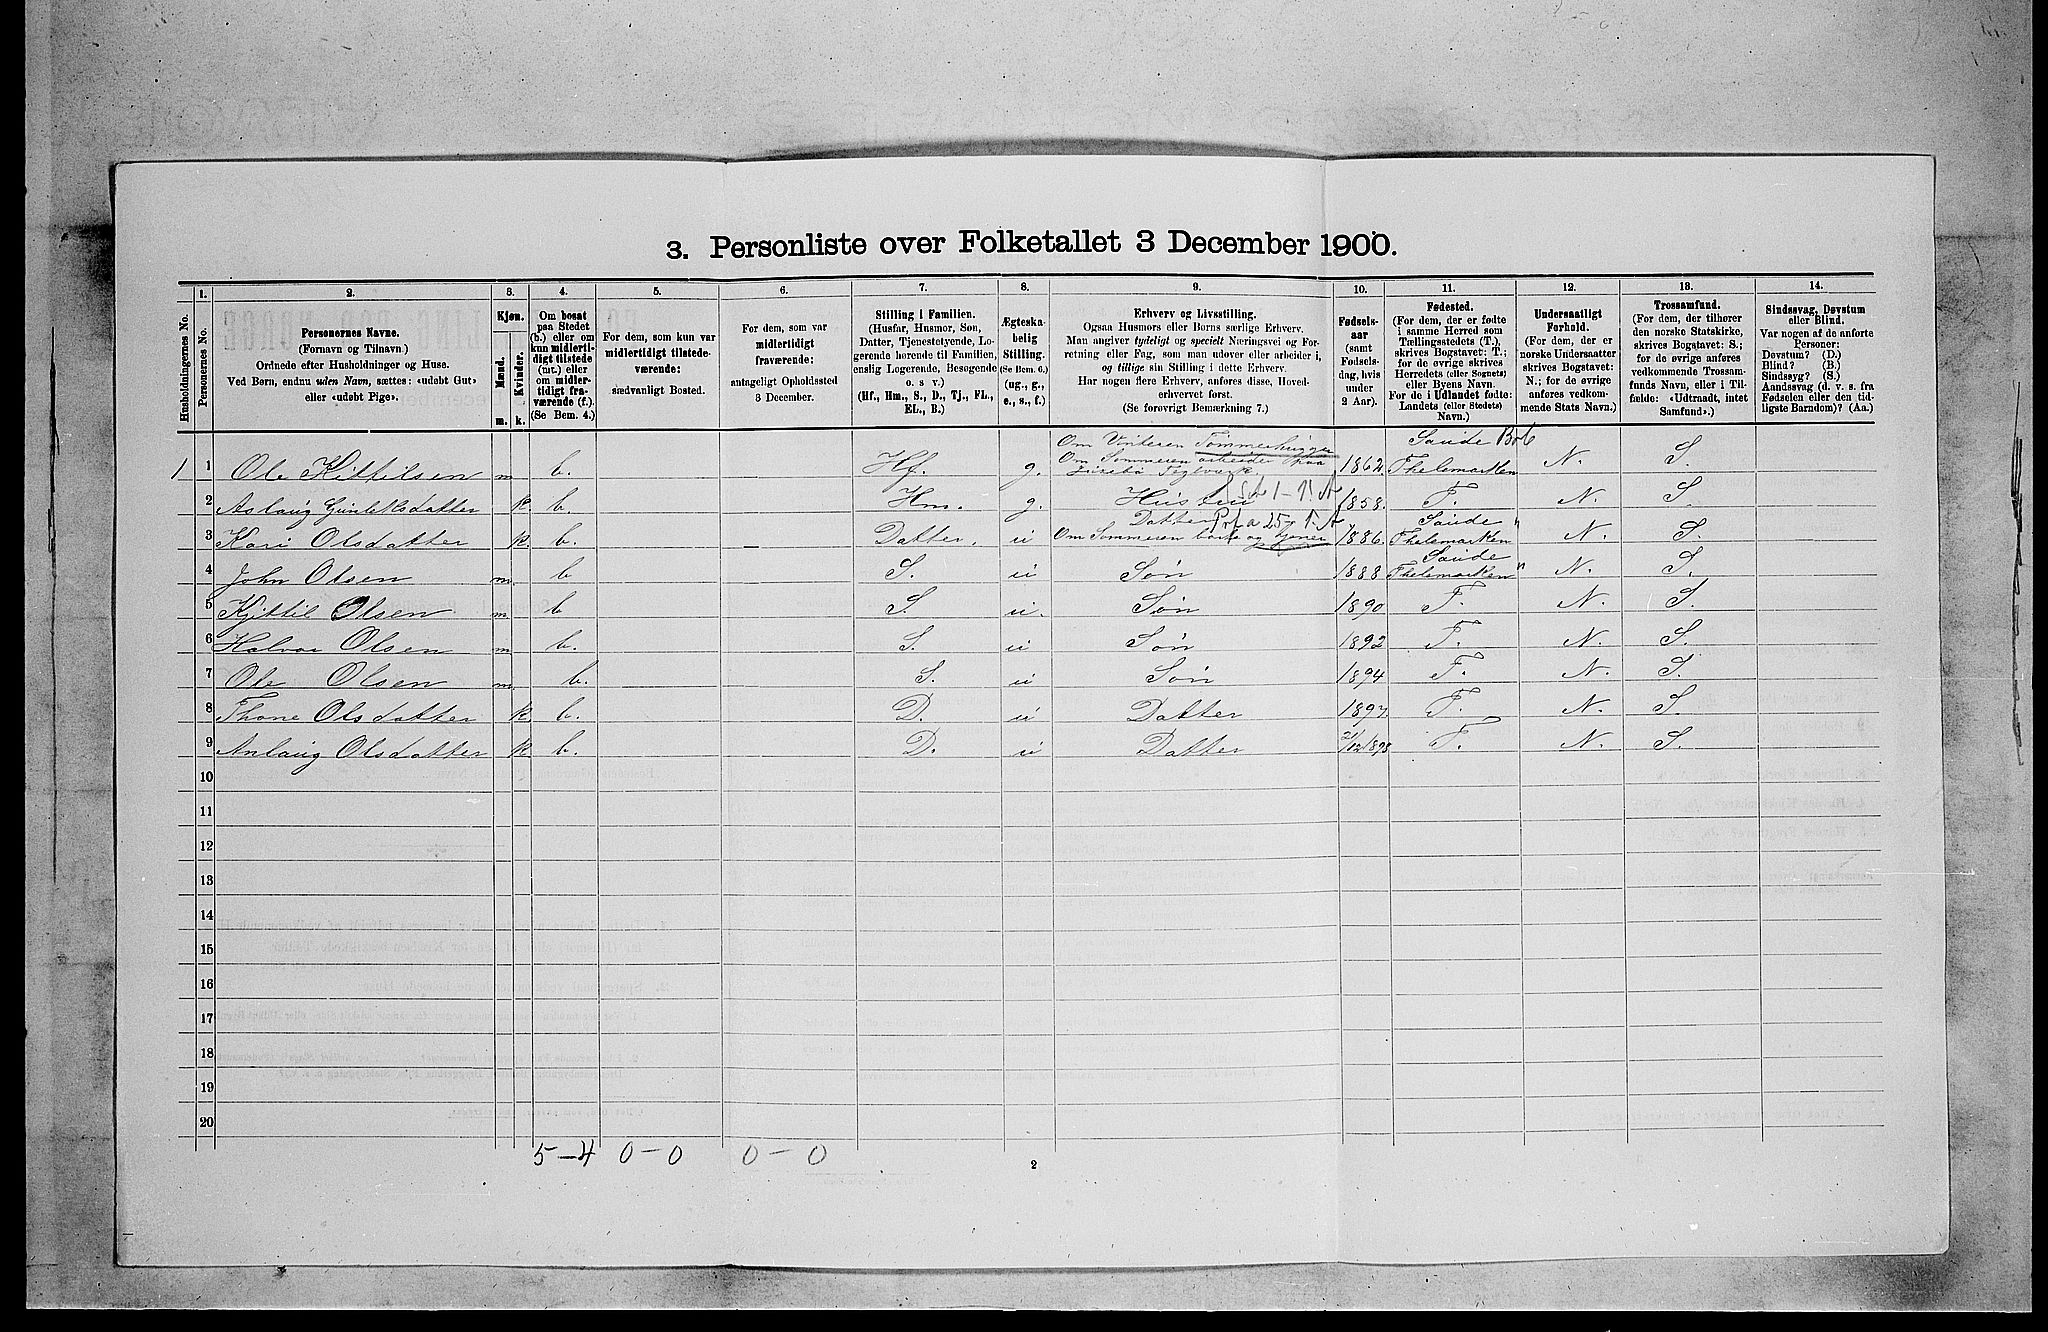 3. Personliste over Folketallet 3 December 1900.
1. 2. 3. 4. 5. 6. 7. 8. 9. 10. 11. 12. 13. 14.
Husholdningernes No.
Personernes No.
Personernes Navne.
(Fornavn og Tilnavn.)
Ordnede efter Husholdninger og Huse.
Ved Børn, endnu uden Navn, sættes: «udøbt Gut»
eller «udøbt Pige».
Kjøn.
Mænd.
Kvinder.
m. k.
Om bosat
paa Stedet
(b.) eller om
kun midlerti-
digt tilstede
(mt.) eller
om midler-
tidigt fra-
værende (f.).
(Se Bem. 4.)
For dem, som kun var
midlertidigt tilstede-
værende:
sædvanligt Bosted.
For dem, som var
midlertidigt
fraværende:
antageligt Opholdssted
3 December.
Stilling i Familien.
(Husfar, Husmor, Søn,
Datter, Tjenestetyende, Lo-
gerende hørende til Familien,
enslig Logerende, Besøgende
o. s. v.)
(Hf., Hm., S., D., Tj., FL.,
EL., B.)
Ægteska-
belig
Stilling.
(Se Bem. 6.)
(ug., g.,
e., s., f.)
Erhverv og Livsstilling.
Ogsaa Husmors eller Børns særlige Erhverv.
Man angiver tydeligt og specielt Næringsvei og For-
retning eller Fag, som man udover eller arbeider i,
og tillige sin Stilling i dette Erhverv.
Har nogen flere Erhverv, anføres disse, Hoved-
erhvervet først.
(Se forøvrigt Bemærkning 7.)
Fødsels-
aar
(samt
Fødsels-
dag, hvis
under
2 Aar).
Fødested.
(For dem, der er fødte
i samme Herred som
Tællingsstedets (T.),
skrives Bogstavet: T.;
for de øvrige skrives
Herredets (eller Sognets)
eller Byens Navn.
For de i Udlandet fødte:
Landets (eller Stedets)
Navn.)
Undersaatligt
Forhold.
(For dem, der er
norske Undersaatter
skrives Bogstavet:
N.; for de øvrige
anføres vedkom-
mende Stats Navn.)
Trossamfund.
(For dem, der tilhører
den norske Statskirke,
skrives Bogstavet: S.;
for de øvrige anføres
vedkommende Trossam-
funds Navn, eller i Til-
fælde: «Udtraadt, intet
Samfund».)
Sindssvag, Døvstum
eller Blind.
Var nogen af de anførte
Personer:
Døvstum? (D.)
Blind? (B.)
Sindssyg? (S.)
Aandssvag (d. v. s. fra
Fødselen eller den tid-
ligste Barndom)? (Aa.)
Om Vinteren Tømmerhugger Saude
1 1 Ole Kittilsen m b. Hf. g. Om Sommeren arbeider paa Teglværk. 1862 Thelemarken N. S.
2 Aslaug Gunleksdatter k b. Hm. g. 1858. T. N. S.
Datter Saude
3 Kari Olsdatter k b. Datter. u Om Sommeren 1886. Thelemarken N. S.
Saude
4 John Olsen m. b S. u Søn 1888 Thelemarken N. S.
5 Kjittil Olsen m b S. u. Søn 1890 T. N. S.
6 Halvor Olsen m b. S. u Søn 1892 T. N. S.
7 Ole Olsen m. b. S. u Søn 1894 T. N. S.
8 Thone Olsdatter k b. D. u Datter 1897. T. N. S.
9 Anlaug Olsdatter k b. D. u Datter T. N. S.
10
11
12
13
14
15
16
17
18
19
20
5-4 0-0 0-0
2